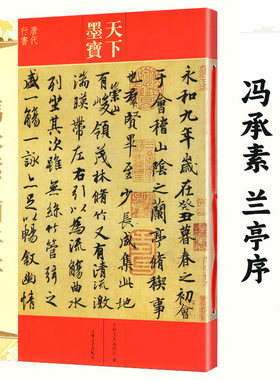 冯承素 兰亭序
天下
墨寶
唐代
行書
永和九年歲在癸丑暮春之初會
于會稽山陰之蘭亭脩稧事
也群賢畢至少長咸集此地
有崇山峻領茂林脩竹又有清流激
湍暎帶左右引以為流觴曲水
列坐其次雖無絲竹管弦之
盛一觴一詠亦足以暢敘幽情